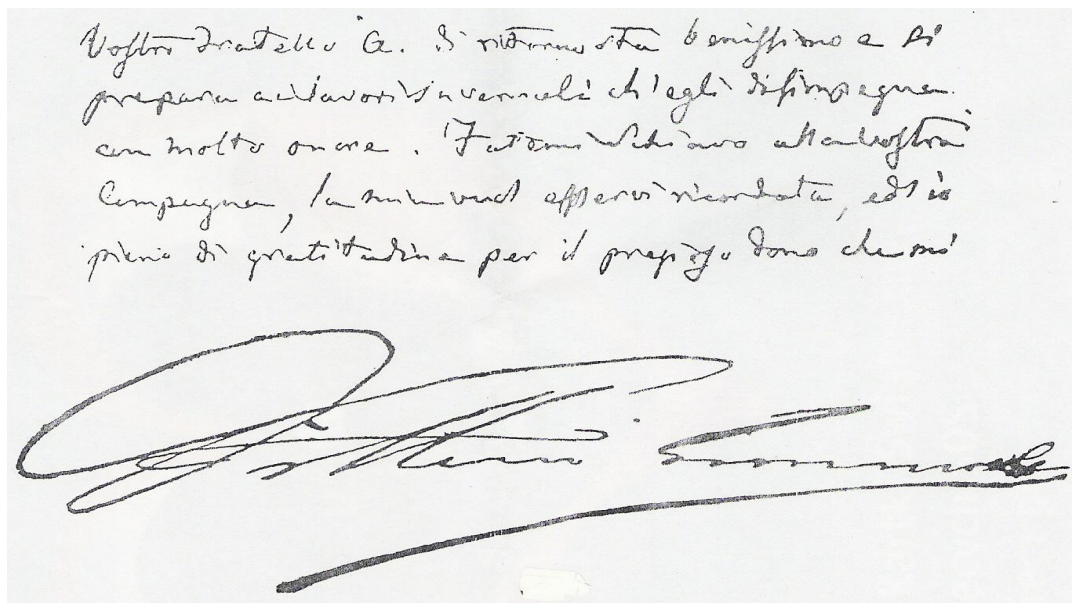 Vostro fratello G. di ritorno sta benissimo e si
prepara ai lavori invernali ch'egli disimpegna
con molto onore. Fatemi schiavo alla vostra
Compagna, la mia vuol esservi ricordata, ed io
pieno di gratitudine per il prezioso dono che mi
Vittorio Emanuele